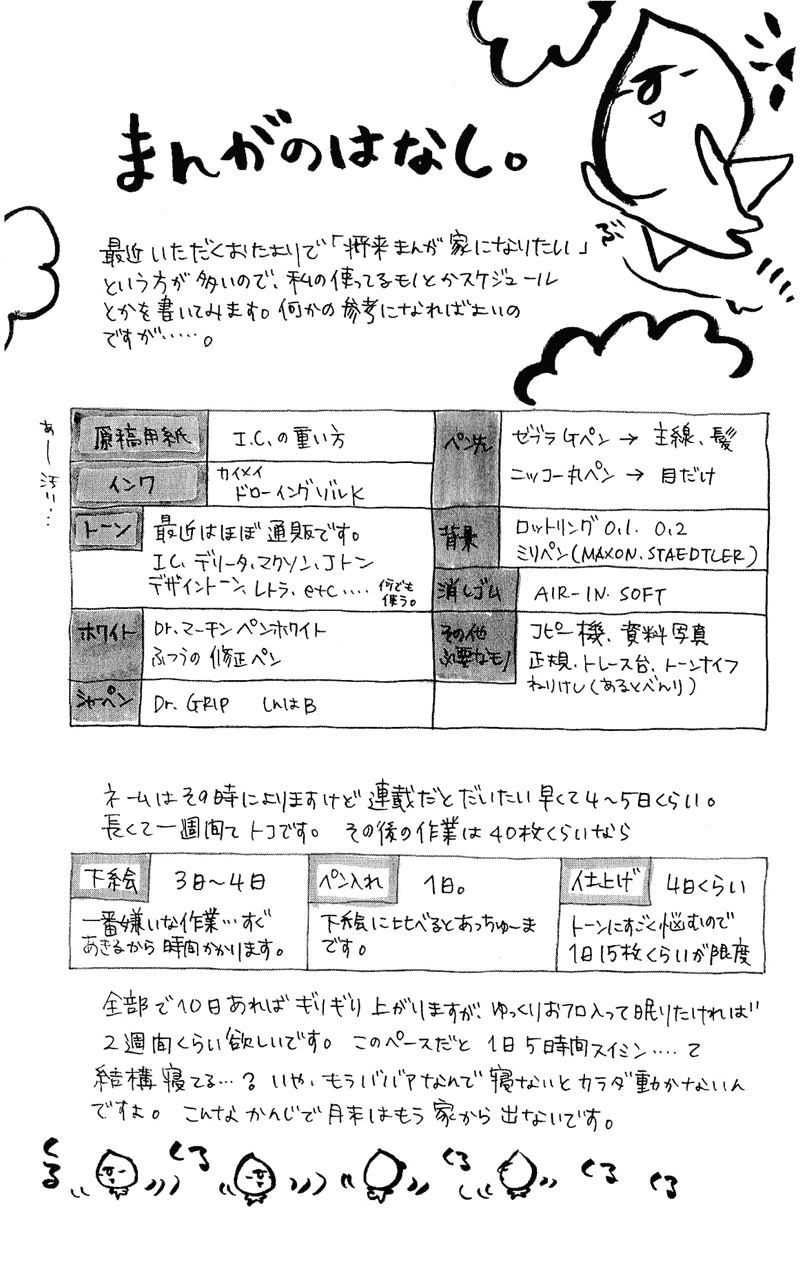 まんがのはなし。
ぶ
最近いただくおたよりで「将来まんが家になりたい」
という方が多いので、私の使ってるモノとかスケジュール
とかを書いてみます。何かの参考になればよいの
ですが……。
あー汚い…
原稿用紙 I.C.の重い方
インク カイメイ
ドローイングゾルK
トーン 最近はほぼ通販です。
I.C.デリータ、マクソン、Jトン
デザイントーン、レトラ、etc…. 何でも使う。
ホワイト Dr.マーチンペンホワイト
ふつうの修正ペン
シャーペン Dr. GRIP しんはB
ペン先 ゼブラGペン → 主線、髪
ニッコー丸ペン → 目だけ
背景 ロットリング 0.1. 0.2
ミリペン(MAXON.STAEDTLER)
消しゴム AIR-IN. SOFT
その他必要なモノ コピー機、資料写真
正規、トレース台、トーンナイフ
ねりけし(あるとべんり)
ネームはその時によりますけど連載だとだいたい早くて4〜5日くらい。
長くて一週間てトコです。 その後の作業は40枚くらいなら
下絵 3日〜4日
一番嫌いな作業…すぐ
あきるから時間かかります。
ペン入れ 1日。
下絵に比べるとあっちゅーま
です。
仕上げ 4日くらい
トーンにすごく悩むので
1日15枚くらいが限度
全部で10日あればギリギリ上がりますが、ゆっくりおフロ入って眠りたければ
2週間くらい欲しいです。 このペースだと 1日5時間スイミン….て
結構寝てる…? いや、もうババアなんで寝ないとカラダ動かないん
ですよ。 こんなかんじで月末はもう家から出ないです。
くる くる くる くる くる